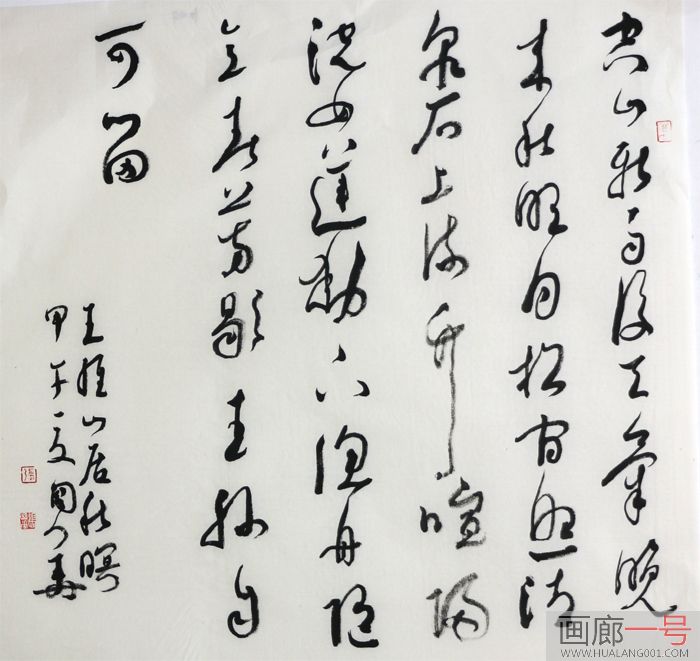 空山新雨後天氣晚
来秋明月松间照清
泉石上流竹喧歸
浣女莲動下漁舟随
意春芳歇王孙自
可留
王维山居秋暝
甲午夏
画廊一号
WWW.HUALANG001.COM